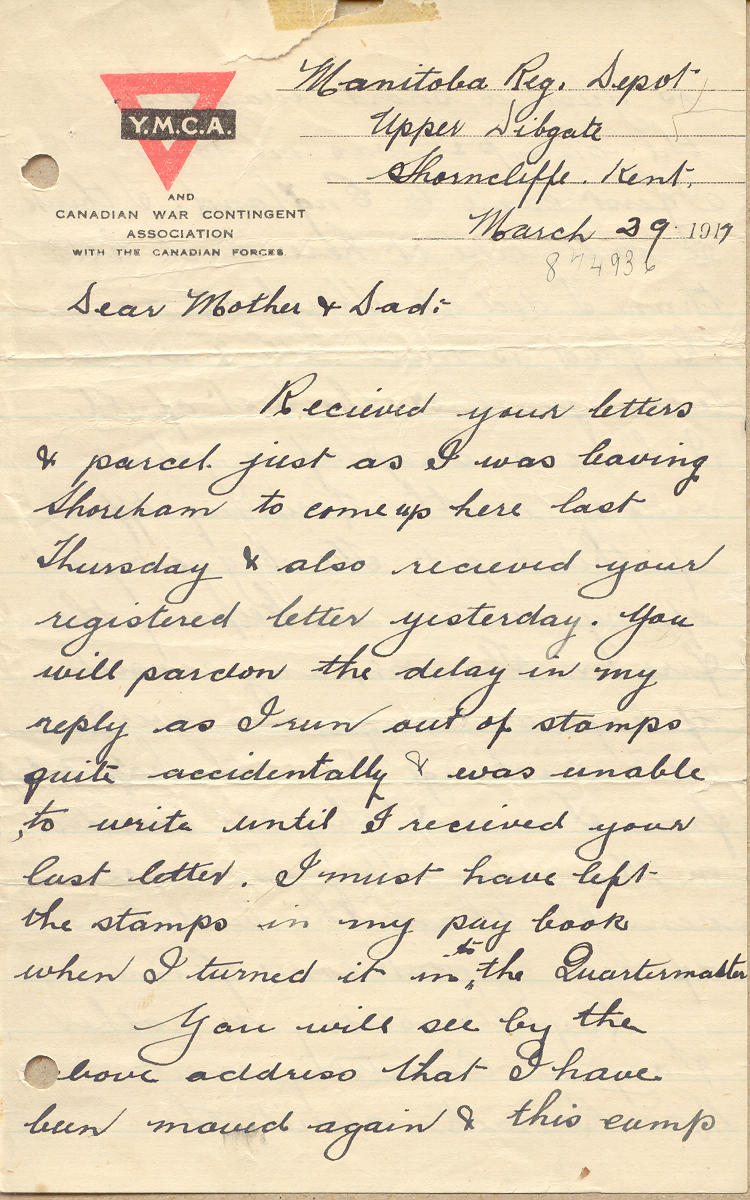 Manitoba Reg. Depot
Upper Dibgate
Shorncliffe. Kent.
March 29. 1917
874936
Y.M.C.A.
AND
CANADIAN WAR CONTINGENT
ASSOCIATION
WITH THE CANADIAN FORCES.
Dear Mother & Dad:-
Recieved your letters
& parcel just as I was leaving
Shoreham to come up here last
Thursday & also recieved your
registered letter yesterday. You
will pardon the delay in my
reply as I run out of stamps
quite accidentally & was unable
to write until I recieved your
last letter. I must have left
the stamps in my pay book
when I turned it in to the Quartermaster
You will see by the
bove address that I have
been moved again & this camp